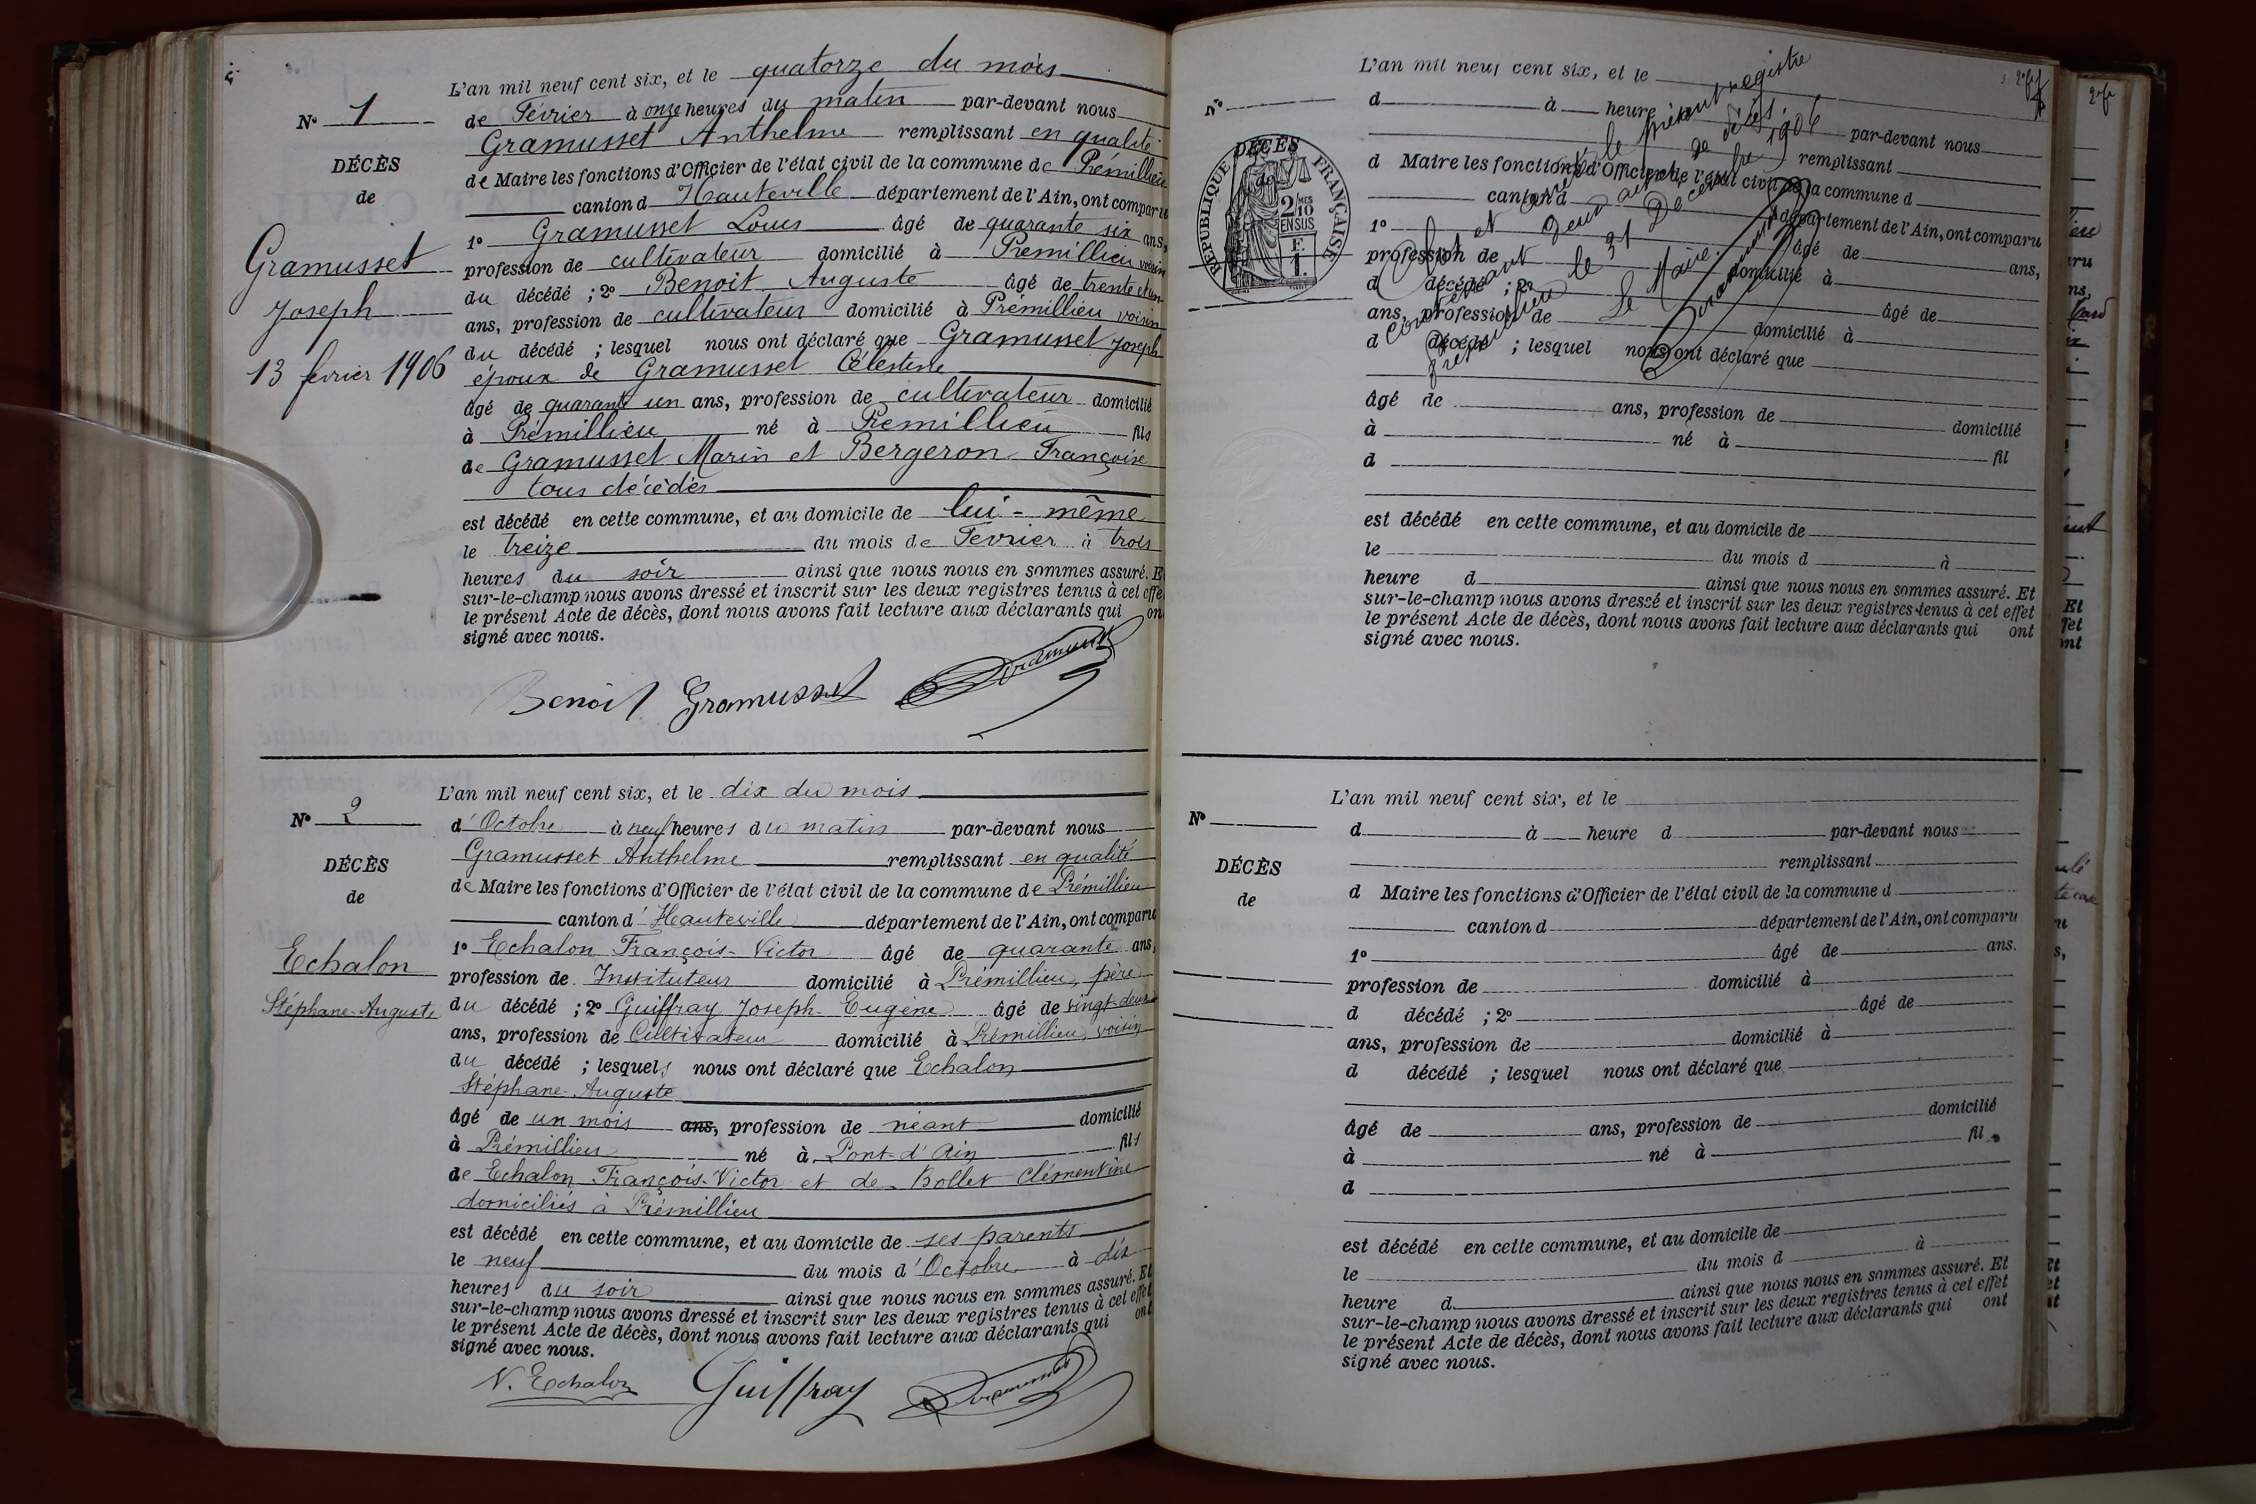 L'an mil neuf cent six, et le quatorze du mois
N° 1
de Février à onze heures du matin par-devant nous
Gramusset Anthelme remplissant en qualité
DÉCÈS
de Maire les fonctions d'Officier de l'état civil de la commune de Prémillieu
de
canton d Hauteville département de l'Ain, ont comparu
1° Gramusset Louis âgé de quarante six ans,
Gramusset
profession de cultivateur domicilié à Prémillieu voisin
du décédé ; 2° Benoit Auguste âgé de trente et un
Joseph
ans, profession de cultivateur domicilié à Prémillieu voisin
du décédé ; lesquel nous ont déclaré que Gramusset Joseph
13 fevrier 1906
époux de Gramusset Célestine
âgé de quarante un ans, profession de cultivateur domicilié
à Prémillieu né à Prémillieu fils
de Gramusset Marin et Bergeron Françoise
tous décédés
est décédé en cette commune, et au domicile de lui-même
le treize du mois de Février à trois
heures du soir ainsi que nous nous en sommes assuré. Et
sur-le-champ nous avons dressé et inscrit sur les deux registres tenus à cet effet
le présent Acte de décès, dont nous avons fait lecture aux déclarants qui ont
signé avec nous.
Benoit Gramusset Gramusset
L'an mil neuf cent six, et le dix du mois
N° 2
d'Octobre à neuf heures du matin par-devant nous
Gramusset Anthelme remplissant en qualité
DÉCÈS
de Maire les fonctions d'Officier de l'état civil de la commune de Prémillieu
de
canton d'Hauteville département de l'Ain, ont comparu
1° Echalon François-Victor âgé de quarante ans,
Echalon
profession de Instituteur domicilié à Prémillieu, père
Stéphane-Auguste
du décédé ; 2° Guiffray Joseph-Eugène âgé de vingt-deux
ans, profession de Cultivateur domicilié à Prémillieu, voisin
du décédé ; lesquels nous ont déclaré que Echalon
Stéphane-Auguste
âgé de un mois ans, profession de néant domicilié
à Prémillieu né à Pont-d'Ain fils
de Echalon François-Victor et de Bollet Clémentine
domiciliés à Prémillieu
est décédé en cette commune, et au domicile de ses parents
le neuf du mois d'Octobre à dix
heures du soir ainsi que nous nous en sommes assuré. Et
sur-le-champ nous avons dressé et inscrit sur les deux registres tenus à cet effet
le présent Acte de décès, dont nous avons fait lecture aux déclarants qui ont
signé avec nous.
V. Echalon Guiffray Gramusset
L'an mil neuf cent six, et le
N°
d à heure par-devant nous
remplissant
DÉCÈS
d Maire les fonctions d'Officier de l'état civil de la commune d
de
canton d département de l'Ain, ont comparu
RÉPUBLIQUE FRANÇAISE
2/10 MES
EN SUS
F.
1.
1° âgé de ans,
profession de domicilié à
d décédé ; 2° âgé de
ans, profession de domicilié à
d décédé ; lesquel nous ont déclaré que
Clos et arrêté le présent registre
contenant deux actes de décès.
Prémillieu le 31 Décembre 1906
Le Maire.
Gramusset
âgé de ans, profession de domicilié
à né à fil
d
est décédé en cette commune, et au domicile de
le du mois d à
heure d ainsi que nous nous en sommes assuré. Et
sur-le-champ nous avons dressé et inscrit sur les deux registres tenus à cet effet
le présent Acte de décès, dont nous avons fait lecture aux déclarants qui ont
signé avec nous.
L'an mil neuf cent six, et le
N°
d à heure d par-devant nous
remplissant
DÉCÈS
d Maire les fonctions d'Officier de l'état civil de la commune d
de
canton d département de l'Ain, ont comparu
1° âgé de ans.
profession de domicilié à
d décédé ; 2° âgé de
ans, profession de domicilié à
d décédé ; lesquel nous ont déclaré que
âgé de ans, profession de domicilié
à né à fil
d
est décédé en cette commune, et au domicile de
le du mois d à
heure d ainsi que nous nous en sommes assuré. Et
sur-le-champ nous avons dressé et inscrit sur les deux registres tenus à cet effet
le présent Acte de décès, dont nous avons fait lecture aux déclarants qui ont
signé avec nous.